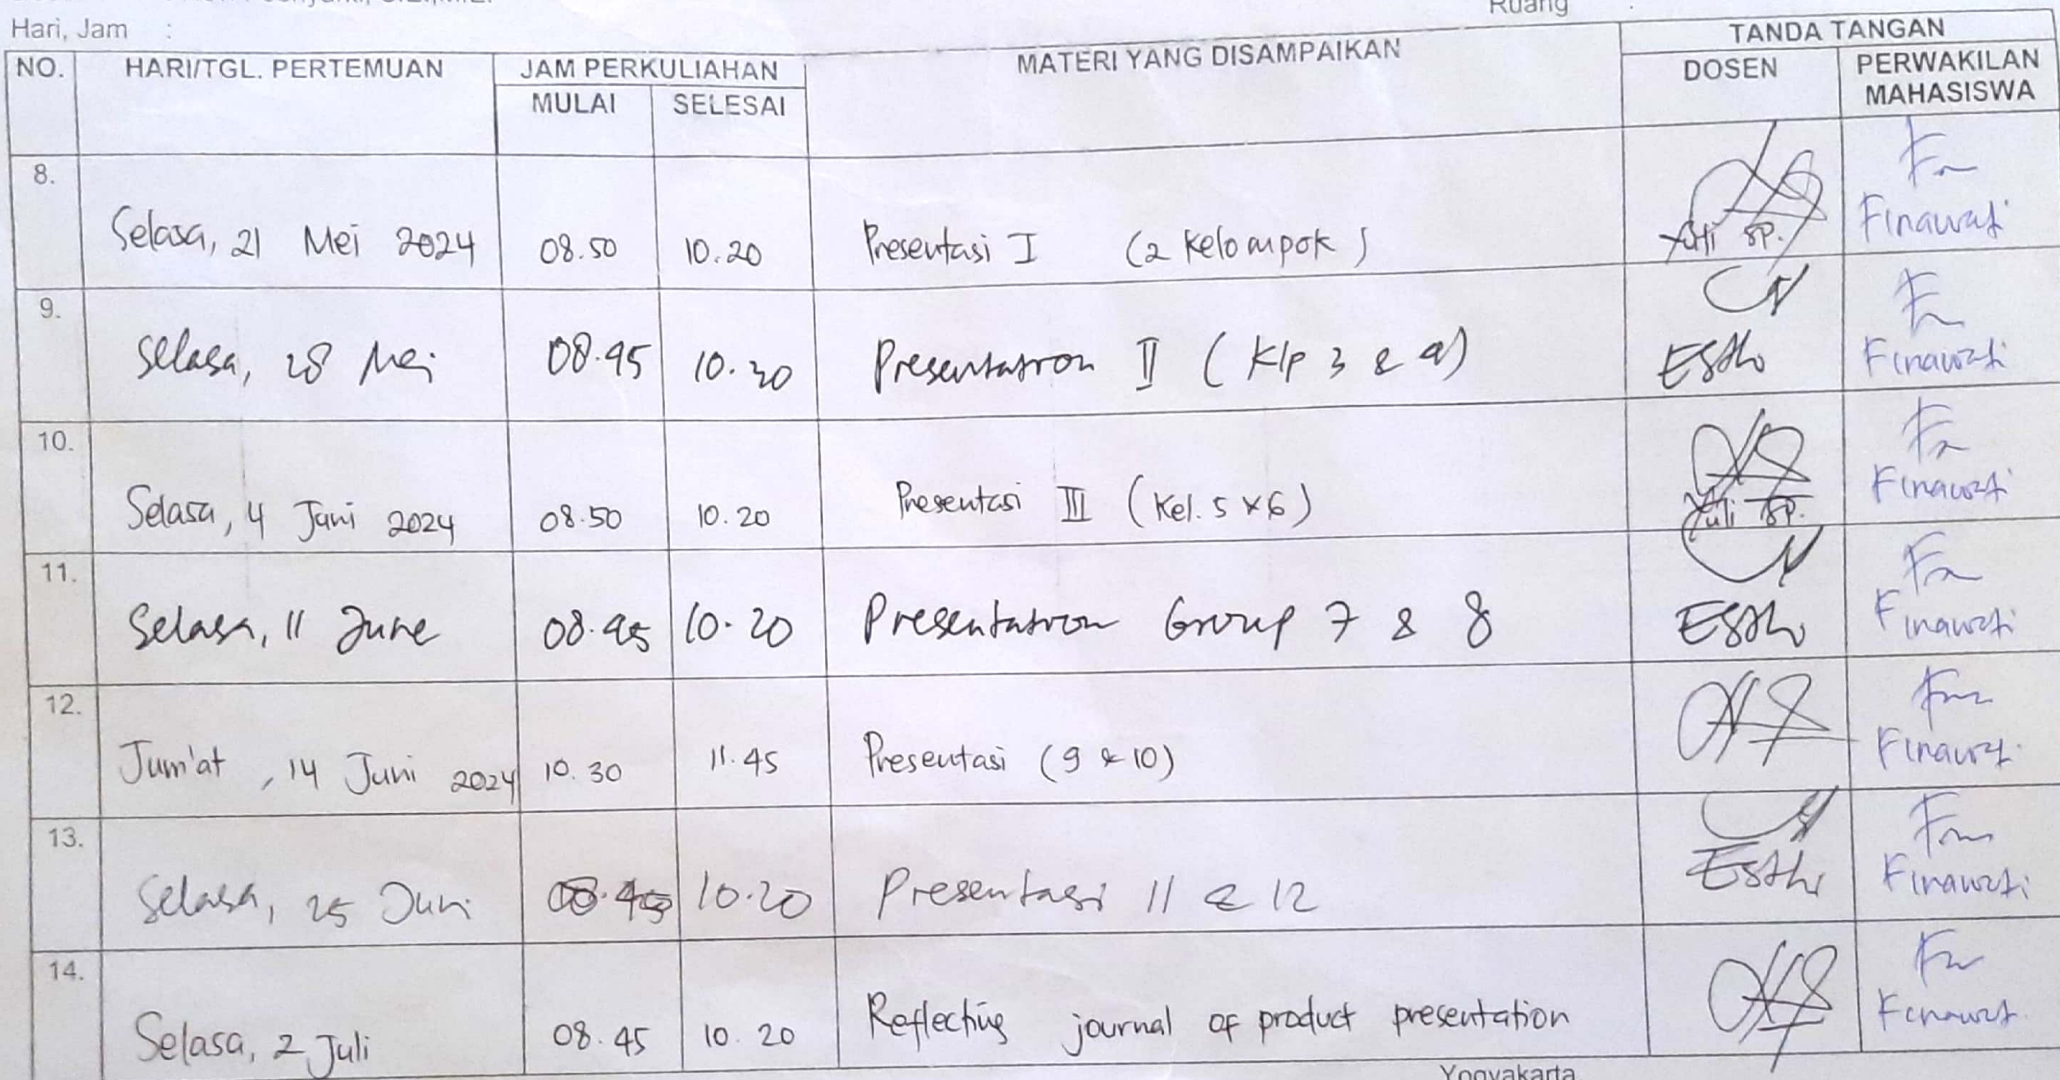 Ruang :
Hari, Jam :
NO. HARI/TGL. PERTEMUAN JAM PERKULIAHAN MATERI YANG DISAMPAIKAN TANDA TANGAN
MULAI SELESAI DOSEN PERWAKILAN MAHASISWA
8. Selasa, 21 Mei 2024 08.50 10.20 Presentasi I (2 Kelompok) Yuli SP. Finawati
9. Selasa, 28 Mei 08.45 10.20 Presentation II (Klp 3 & 4) Esthi Finawati
10. Selasa, 4 Juni 2024 08.50 10.20 Presentasi III (Kel. 5 & 6) Yuli SP. Finawati
11. Selasa, 11 June 08.45 10.20 Presentation Group 7 & 8 Esthi Finawati
12. Jum'at, 14 Juni 2024 10.30 11.45 Presentasi (9 & 10) Finawati
13. Selasa, 25 Juni 08.45 10.20 Presentasi 11 & 12 Esthi Finawati
14. Selasa, 2 Juli 08.45 10.20 Reflecting journal of product presentation Finawati
Yogyakarta